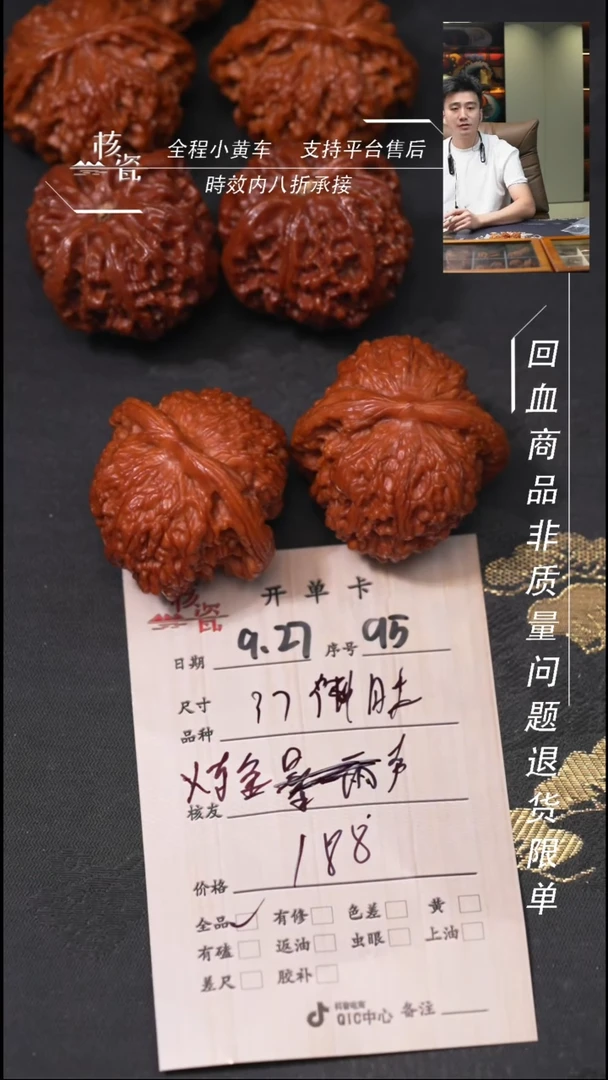 核瓷
全程小黄车 支持平台售后
時效内八折承接
回血商品非质量问题退货限单
核瓷
开单卡
日期 9.27 序号 95
尺寸 37
品种
核友
价格 188
全品 有修 色差 黄
有磕 返油 虫眼 上油
差尺 胶补
抖音电商
QIC中心 备注